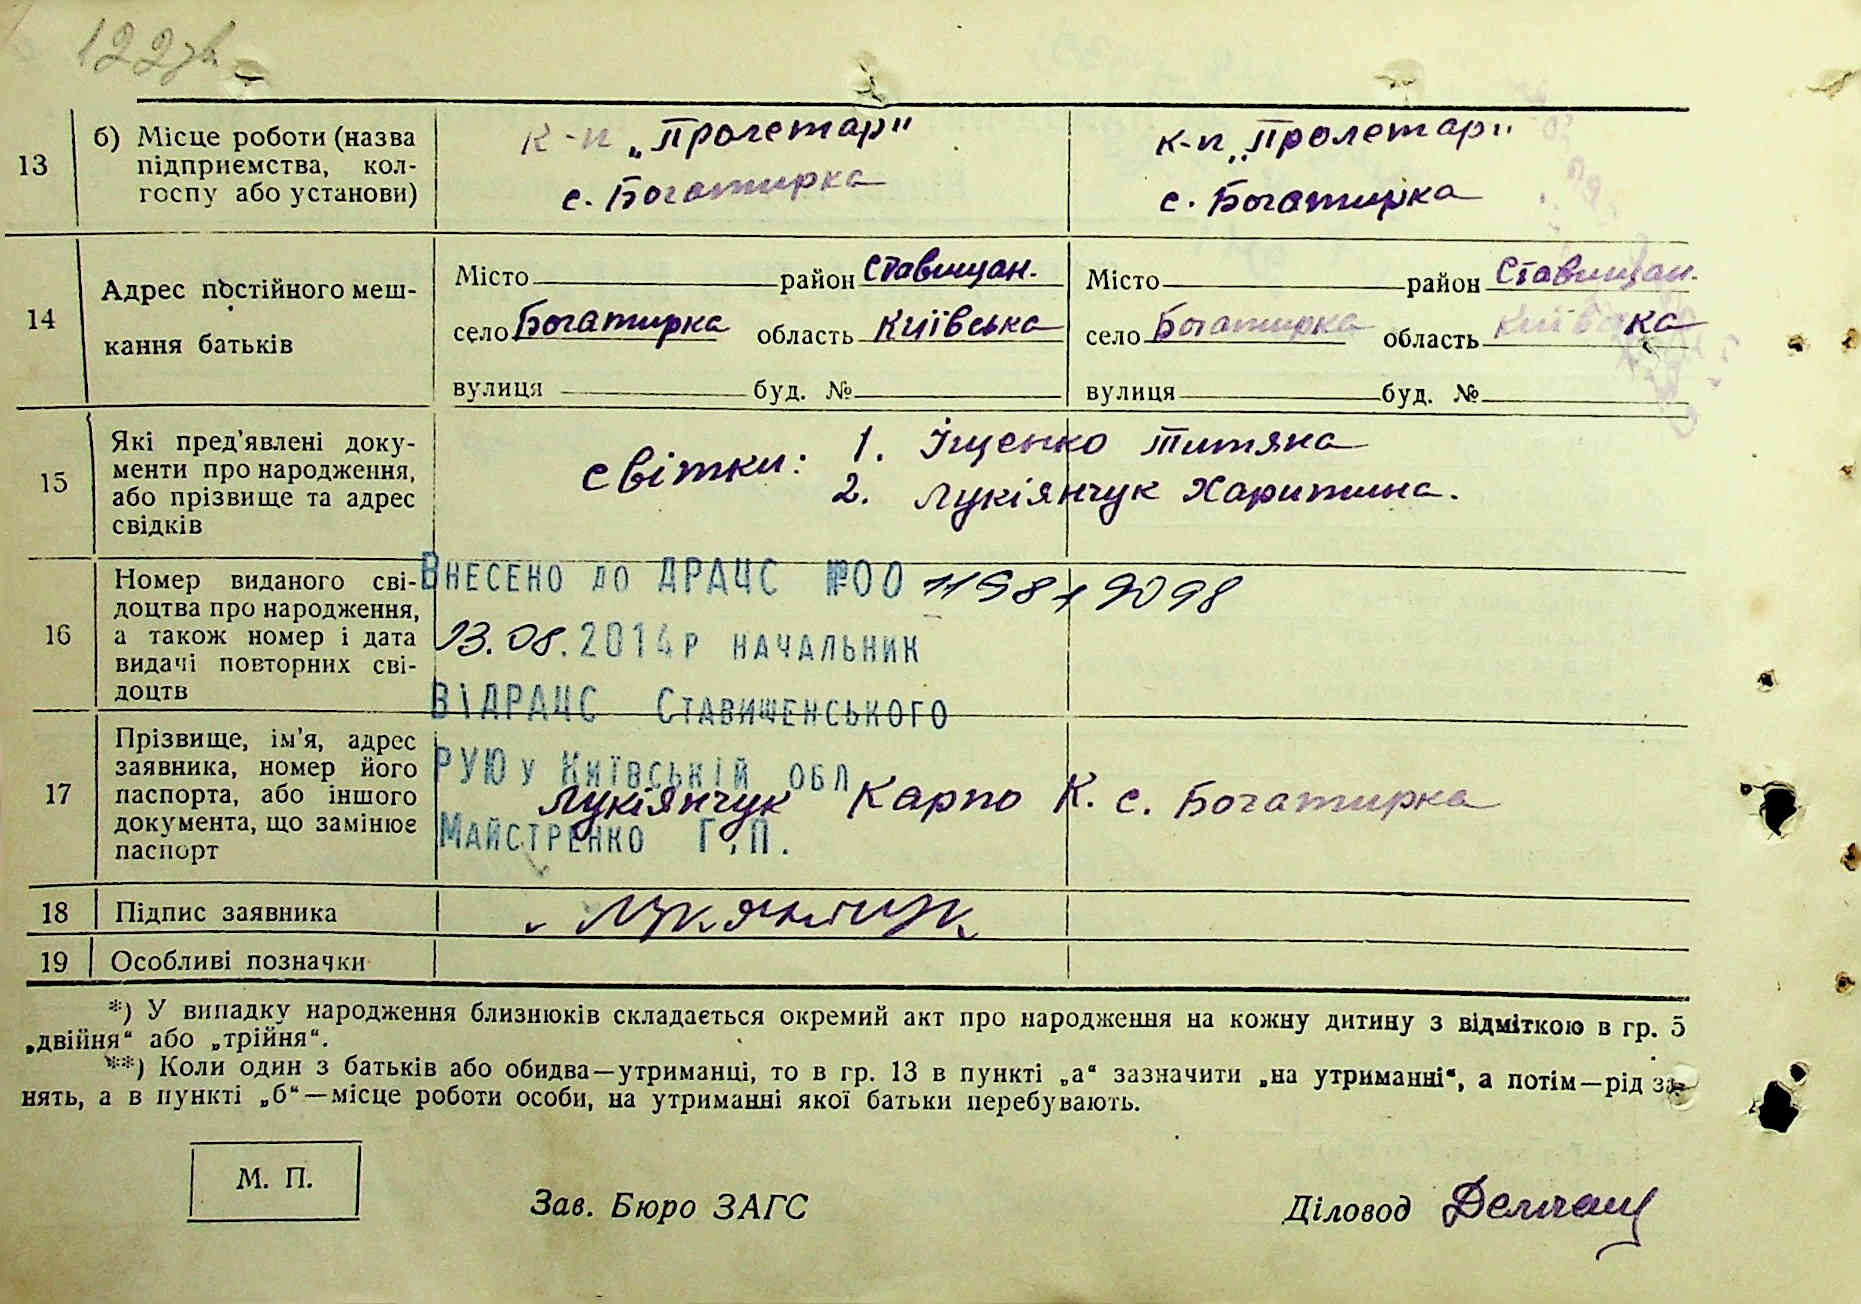 122 зв.
13
б) Місце роботи (назва
підприємства, кол-
госпу або установи)
к-п „Пролетар"
с. Богатирка
к-п „Пролетар"
с. Богатирка
14
Адрес постійного меш-
кання батьків
Місто район Ставищан.
село Богатирка область Київська
вулиця буд. №
Місто район Ставищан.
село Богатирка область Київська
вулиця буд. №
15
Які пред'явлені доку-
менти про народження,
або прізвище та адрес
свідків
Світки: 1. Іщенко Титяна
2. Лукіянчук Харитина.
16
Номер виданого сві-
доцтва про народження,
а також номер і дата
видачі повторних сві-
доцтв
Внесено до ДРАЦС №00
13.08.2014р начальник
ВІДРАЦС Ставищенського
РУЮ у Київській обл
Майстренко Г.П.
17
Прізвище, ім'я, адрес
заявника, номер його
паспорта, або іншого
документа, що замінює
паспорт
Лукіянчук Карпо К. с. Богатирка
18 Підпис заявника
19 Особливі позначки
*) У випадку народження близнюків складається окремий акт про народження на кожну дитину з відміткою в гр. 5
„двійня“ або „трійня“.
**) Коли один з батьків або обидва—утриманці, то в гр. 13 в пункті „а“ зазначити „на утриманні“, а потім—рід за-
нять, а в пункті „б“—місце роботи особи, на утриманні якої батьки перебувають.
М. П.
Зав. Бюро ЗАГС
Діловод